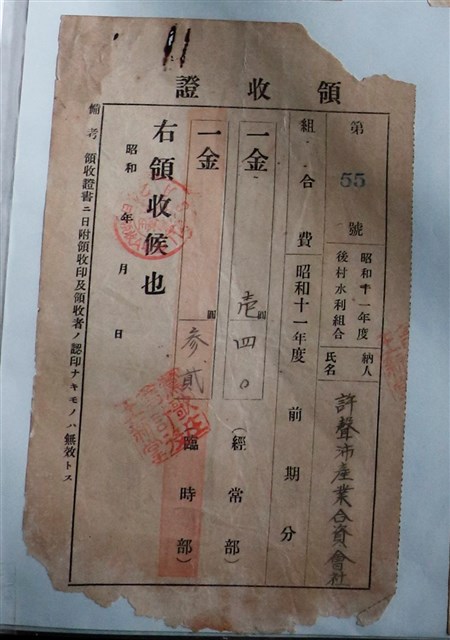 領收證
第55號
昭和十一年度
後村水利組合
納人
氏名
許聲沛產業合資會社
組合費 昭和十一年度 前期分
一金 壱圓四〇 (經常部)
一金 圓參貳 (臨時部)
右領收候也
昭和 年 月 日
備考 領收證書ニ日附領收印及領收者ノ認印ナキモノハ無效トス